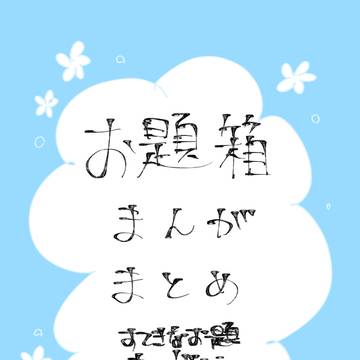 お題箱
まんが
まとめ
すてきなお題